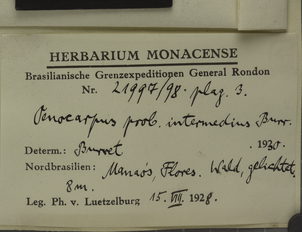 HERBARIUM MONACENSE
Brasilianische Grenzexpeditionen General Rondon
Nr. 21997/98 plag. 3.
Oenocarpus prob. intermedius Burr.
Determ.: Burret . 1930.
Nordbrasilien: Manaós, Flores. Wald, gelichtet.
8 m.
Leg. Ph. v. Luetzelburg 15. VIII. 1928.